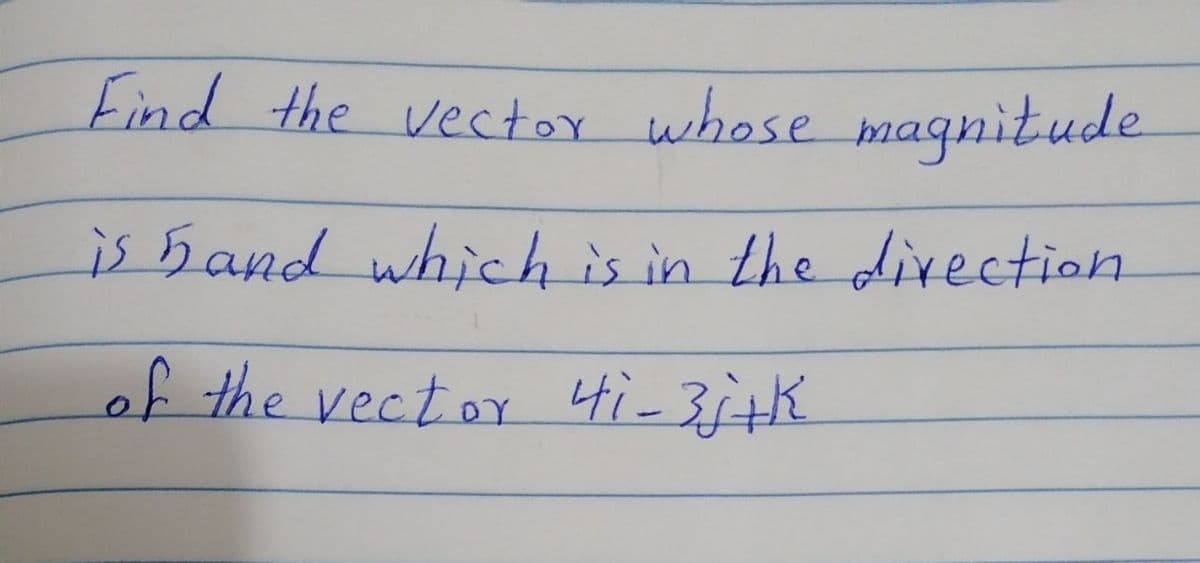 Find the vector whose magnitude
is 5 and which is in the direction
of the vector 4i-3j+K